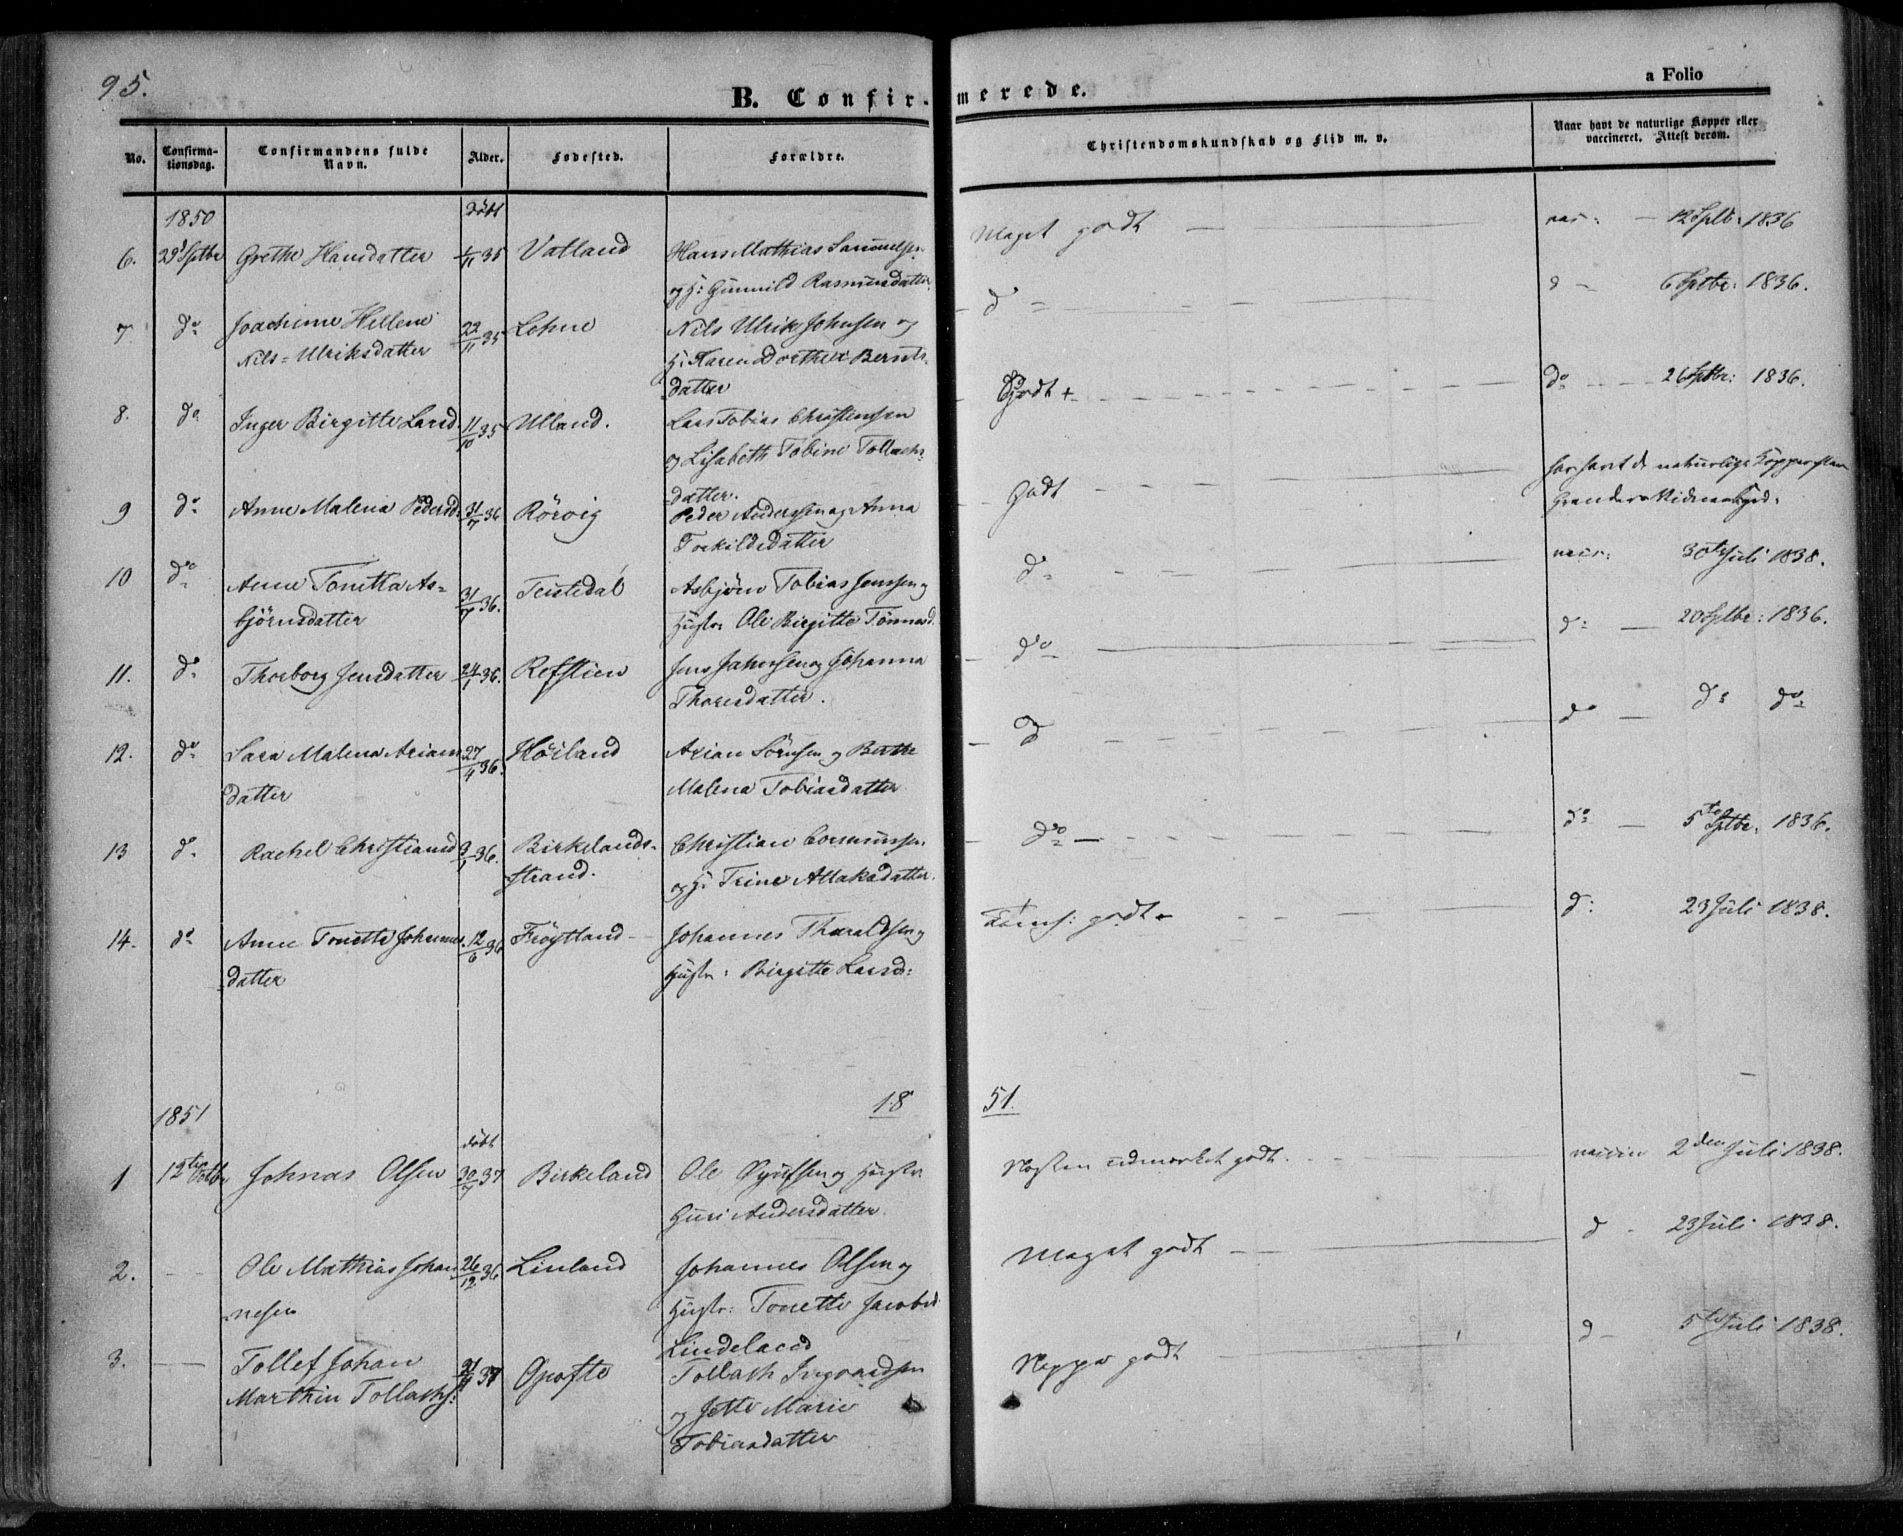 95.
B. Confir-
merede.
a Folio
No.
Confirma-
tionsdag.
Confirmandens fulde
Navn.
Alder.
Fødested.
Forældre.
Christendomskundskab og Flid m. v.
Naar havt de naturlige Kopper eller
vaccineret. Attest derom.
1850 født
6. 29 Sptbr Grethe Hansdatter 1/11 35 Vatland Hans Mathias Samuelsen Meget godt vac: 12 Sptb: 1836
og H: Gunnild Rasmusdatter
7 do Joachime Hellene 22/11 35 Lohne Nils Ulrik Johnsen og do d 6 Sptbr: 1836.
Nils=Ulriksdatter H: Karen Dorthea Bernts-
datter
8. do Inger Birgitte Larsd. 11/10 35 Ulland. Lars Tobias Christensen Godt + do 26 Sptbr: 1836.
og Lisabeth Tobine Tollachs-
datter.
9 do Anne Malena Pedersd. 31/7 36 Rörvig Peder Andersen og Anna Godt har havt de naturlige Kopper
Torkildsdatter
10 do Anne Tonetta As= 31/7 36. Teistedal Asbjörn Tobias Jenssen og do vacc: 30te Juli 1838.
björnsdatter Hustr: Ole Birgitte Tönnesd.
11. do Thorborg Jensdatter 24/1 36. Refstien Jens Jakobsen og Johanna do d: 20 Sptbr: 1836.
Thoresdatter.
12. do Sara Malena Arians 27/4 36. Höiland Arian Sörensen og Berthe d do do do
datter Malena Tobiasdatter
13 do Rachel Christiansd 3/1 36. Birkelands- Christian do do 5te Sptbr. 1836.
strand. og H: Trine Atlaksdatter.
14. do Anne Tonette Johannes 12/6 36 Fröytland Johannes Tharaldsen og godt d: 23 Juli 1838.
datter Hustr: Birgitte Larsd:
1851 18 51.
født
1 12te Octbr Johnas Olsen 30/7 37 Birkeland Ole og Hustr. Næsten udmærket godt. vaccin 2den Juli 1838.
Guri Andersdatter.
2. Ole Mathias Johan 26/12 36 Linland Johannes Olsen og Meget godt d 23 Juli 1838.
nesen Hustr: Tonette Jacobsd.
Lindeland
3. Tollef Johan 37 Opofte Tollach Ingvaldsen Neppe godt d 5te Juli 1838.
Marthin Tollachs: og Jette Marie
Tobiasdatter